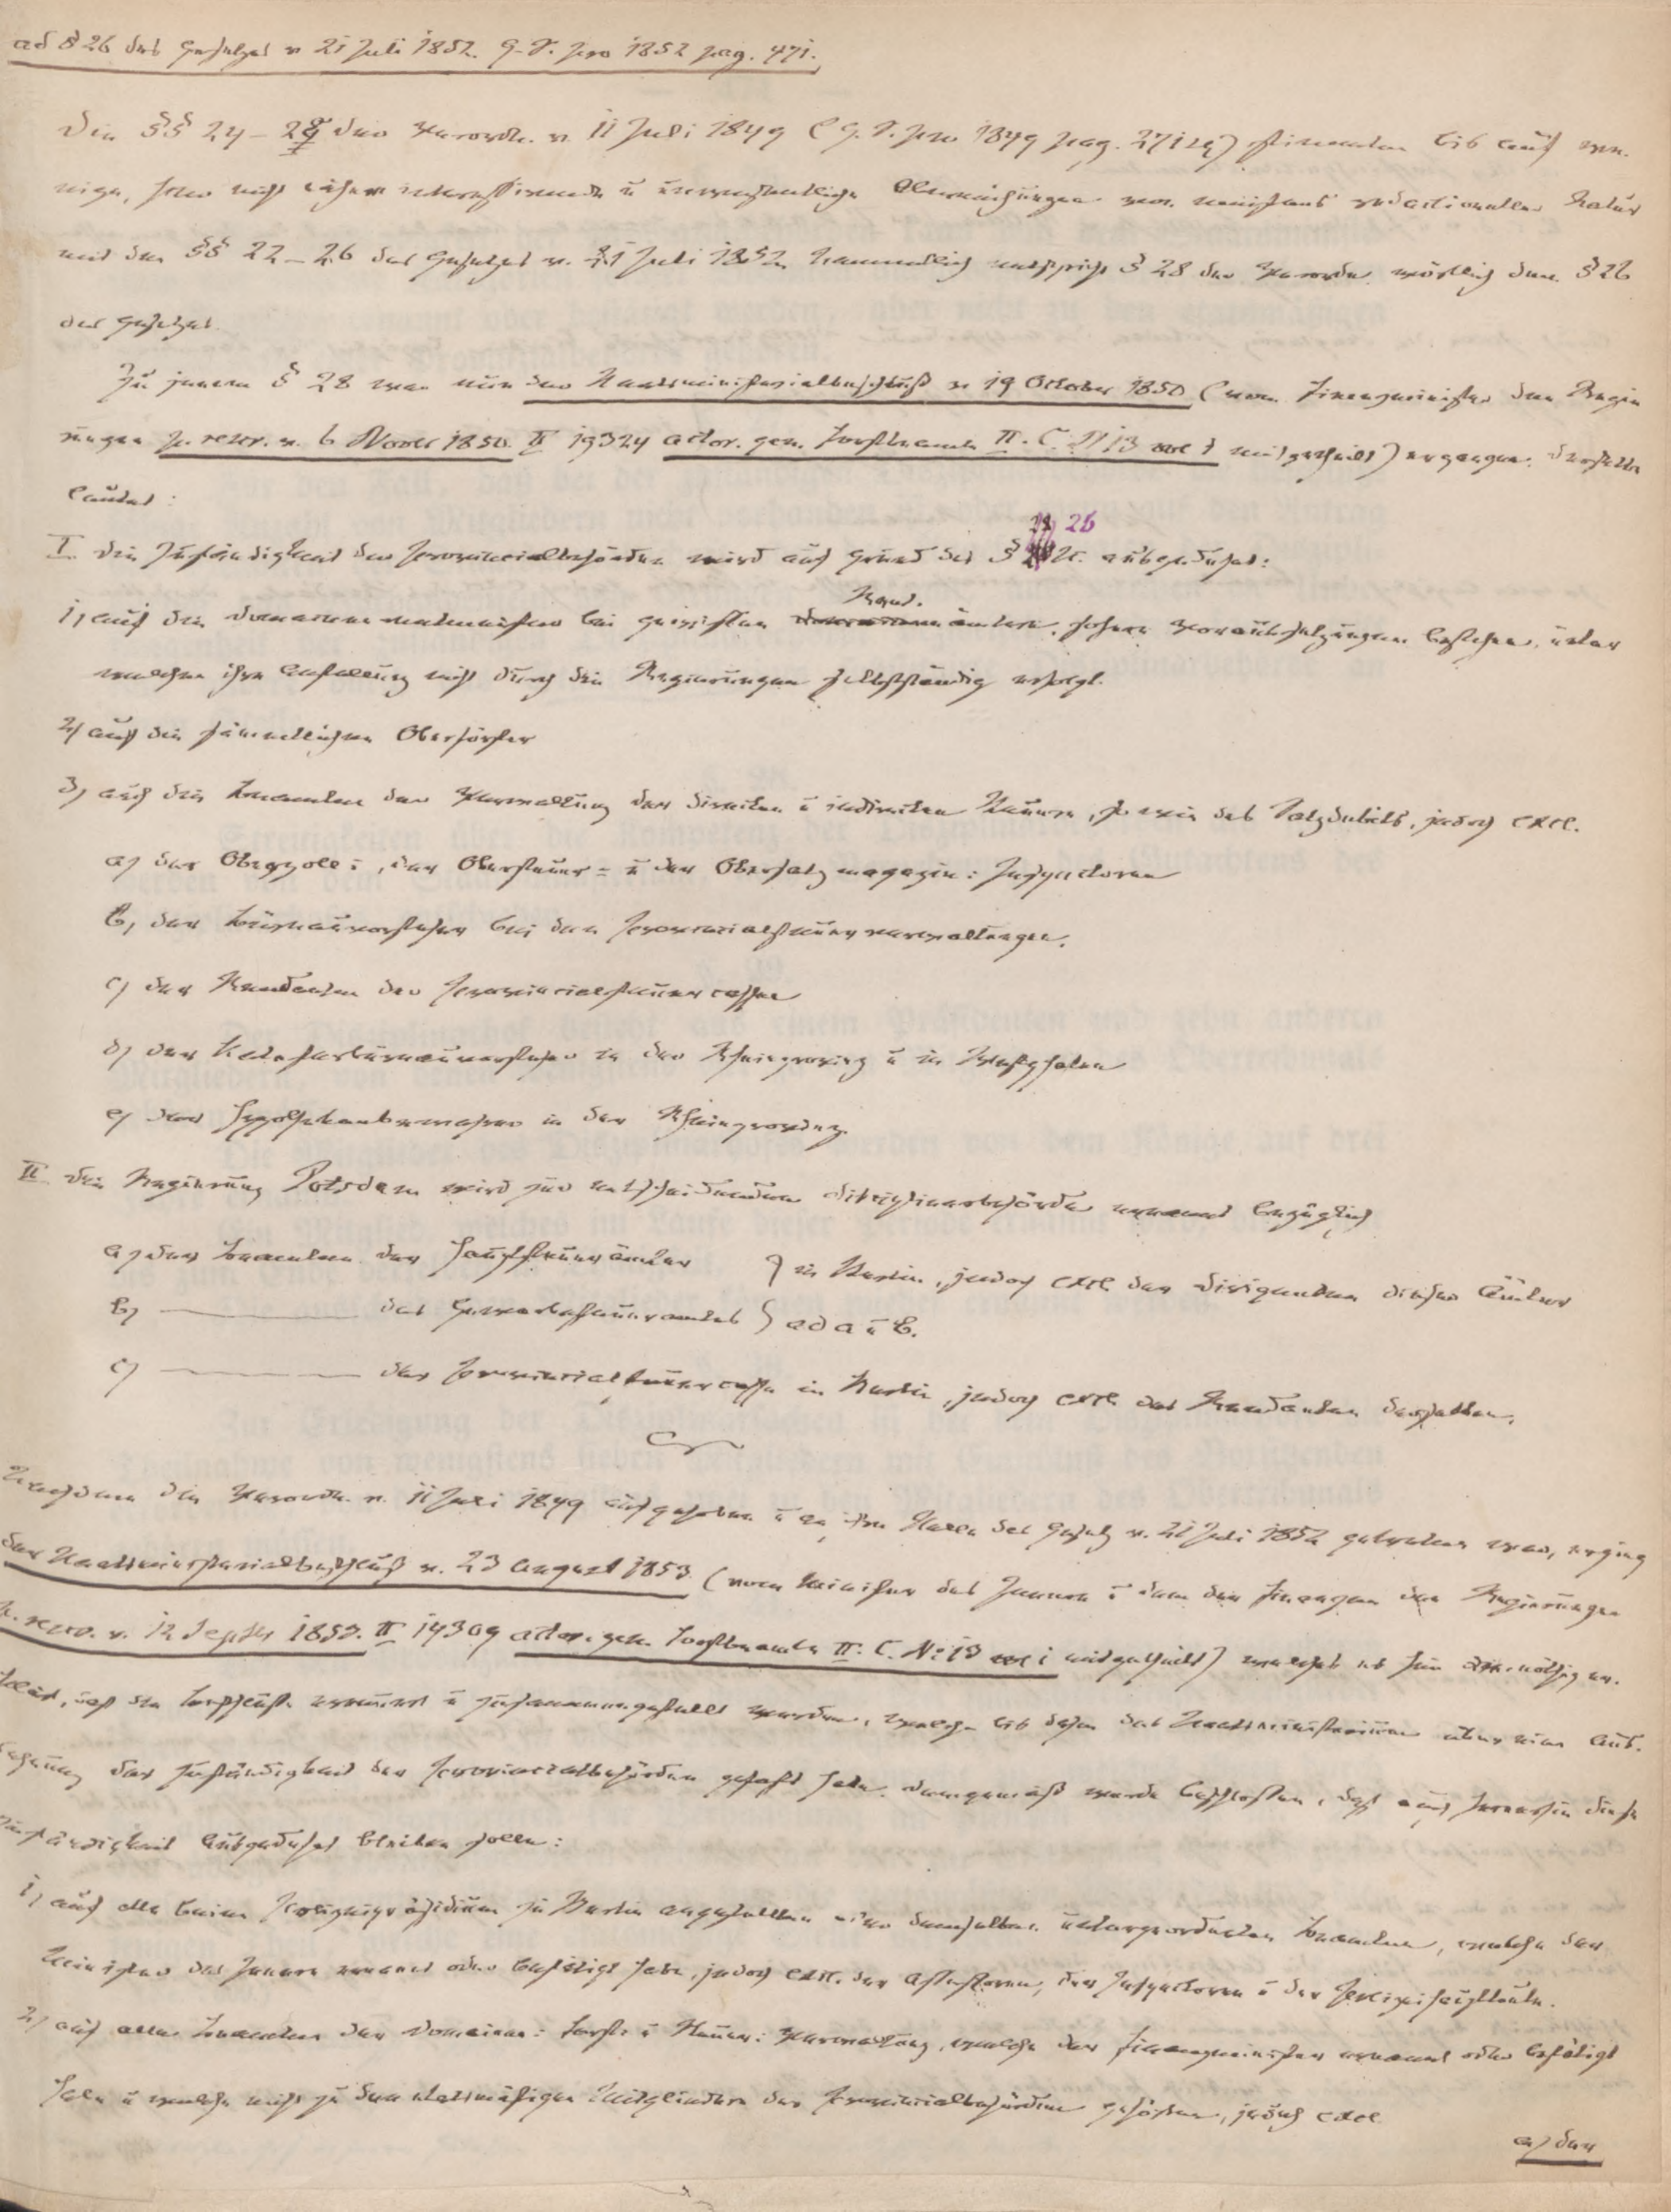 ad § 26 des Gesetzes v 21 Juli 1852. G. S. pro 1852 pag. 471.
Die §§ 24–28 der Verordn. v. 11 Juli 1849 (G. S. pro 1849 pag. 271 sq) stimmten bis auf we-
nige, hier nicht näher interessirende u unwesentliche Abweichungen von meistens redactioneller Natur
mit den §§ 22–26 des Gesetzes v. 21 Juli 1852. Namentlich entspricht § 28 der Verordn. wörtlich dem § 26
des Gesetzes.
Zu jenem § 28 war nun der Staatsministerialbeschluß v 19 October 1850 (vom Finanzminister den Regie
rungen p. rescr. v. 6 Novbr 1850. II 19324 actor. gen. Forstbeamte II. C. N 13 vol 1 mitgetheilt) ergangen. Derselbe
lautet:
I. Die Zuständigkeit der Provincialbehörden wird auf Grund des § 28 26 ausgedehnt:
1, auf die Domainenrentmeister bei gewissen Rent-ämtern, sofern Voraussetzungen bestehen, unter
welchen ihre Anstellung nicht durch die Regierungen selbstständig erfolgt.
2, auf die sämmtlichen Oberförster
3, auf die Beamten der Verwaltung der direkten u indirekten Steuern, so wie des Salzdebits, jedoch excl.
a, der Oberzoll-, der Obersteuer- u der Obersalzmagazin-Inspectoren
b, der Büreauvorsteher bei den Provincialsteuerverwaltungen.
c, der Rendanten der Provincialsteuercassen
d, der Katasterbüreauvorsteher in der Rheinprovinz u in Westphalen
e, der Hypothekenbewahrer in der Rheinprovinz.
II. Die Regierung Potsdam wird zur entscheidenden Disciplinarbehörde ernannt bezüglich
a, der Beamten der Hauptsteuerämter } in Berlin, jedoch excl der Dirigenten dieser Ämter
b, ——— des Gewerbesteueramtes } ad a u b.
c, ——— der Provincialsteuercasse in Berlin, jedoch excl des Rendanten derselben.
Nachdem die Verordn. v. 11 Juli 1849 aufgehoben u an ihre Stelle das Gesetz v. 21 Juli 1852 getreten war, erging
der Staatsministerialbeschluß v. 23 August 1853 (vom Minister des Innern u dem der Finanzen den Regierungen
p. rescr. v. 12 Septbr 1853. II 19309 actor. gen. Forstbeamte II. C. N: 13 vol 1 mitgetheilt) welcher es für nöthig er-
klärt, daß die Beschlüsse erneuert u zusammengestellt werden, welche bis dahin das Staatsministerium über eine Aus-
dehnung der Zuständigkeit der Provincialbehörden gefaßt habe. Demgemäß wurde beschlossen, daß auch fernerhin diese
Zuständigkeit ausgedehnt bleiben solle:
1, auf alle beim Polizeipräsidium zu Berlin angestellten oder demselben untergeordneten Beamten, welche der
Minister des Innern ernannt oder bestätigt habe, jedoch excl. der Assessoren, der Inspectoren u der Polizeihauptleute.
2, auf alle Beamten der Domainen- Forst- u Steuer-Verwaltung, welche der Finanzminister ernannt oder bestätigt
habe u welche nicht zu den etatsmäßigen Mitgliedern der Provincialbehörden gehören, jedoch excl
a, der